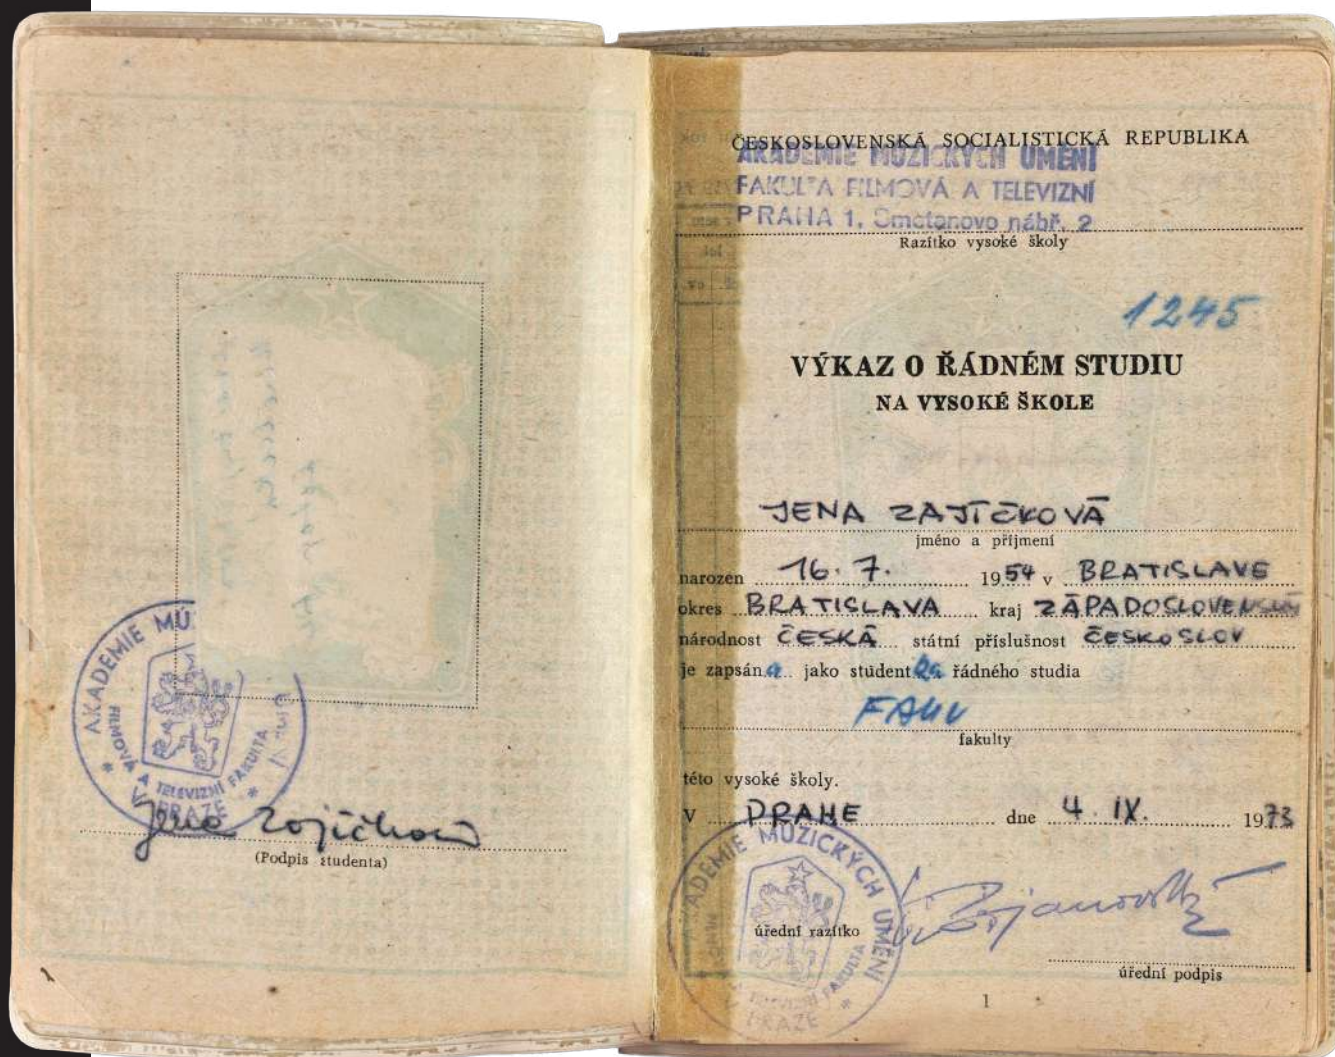 AKADEMIE MÚ
FILMOVÁ A TELEVIZNÍ FAKULTA
V PRAZE
Jena Zajíčková
(Podpis studenta)
ČESKOSLOVENSKÁ SOCIALISTICKÁ REPUBLIKA
AKADEMIE MÚZICKÝCH UMĚNÍ
FAKULTA FILMOVÁ A TELEVIZNÍ
PRAHA 1, Smetanovo nábř. 2
Razítko vysoké školy
1245
VÝKAZ O ŘÁDNÉM STUDIU
NA VYSOKÉ ŠKOLE
JENA ZAJÍČKOVÁ
jméno a příjmení
narozen 16. 7. 1954 v BRATISLAVE
okres BRATISLAVA kraj ZÁPADOSLOVENSKÝ
národnost ČESKÁ státní příslušnost ČESKOSLOV
je zapsán a jako student ka řádného studia
FAMU
fakulty
této vysoké školy.
V PRAHE dne 4. IX. 1973
AKADEMIE MÚZICKÝCH UMĚNÍ
FILMOVÁ A TELEVIZNÍ FAKULTA
V PRAZE
úřední razítko
úřední podpis
1